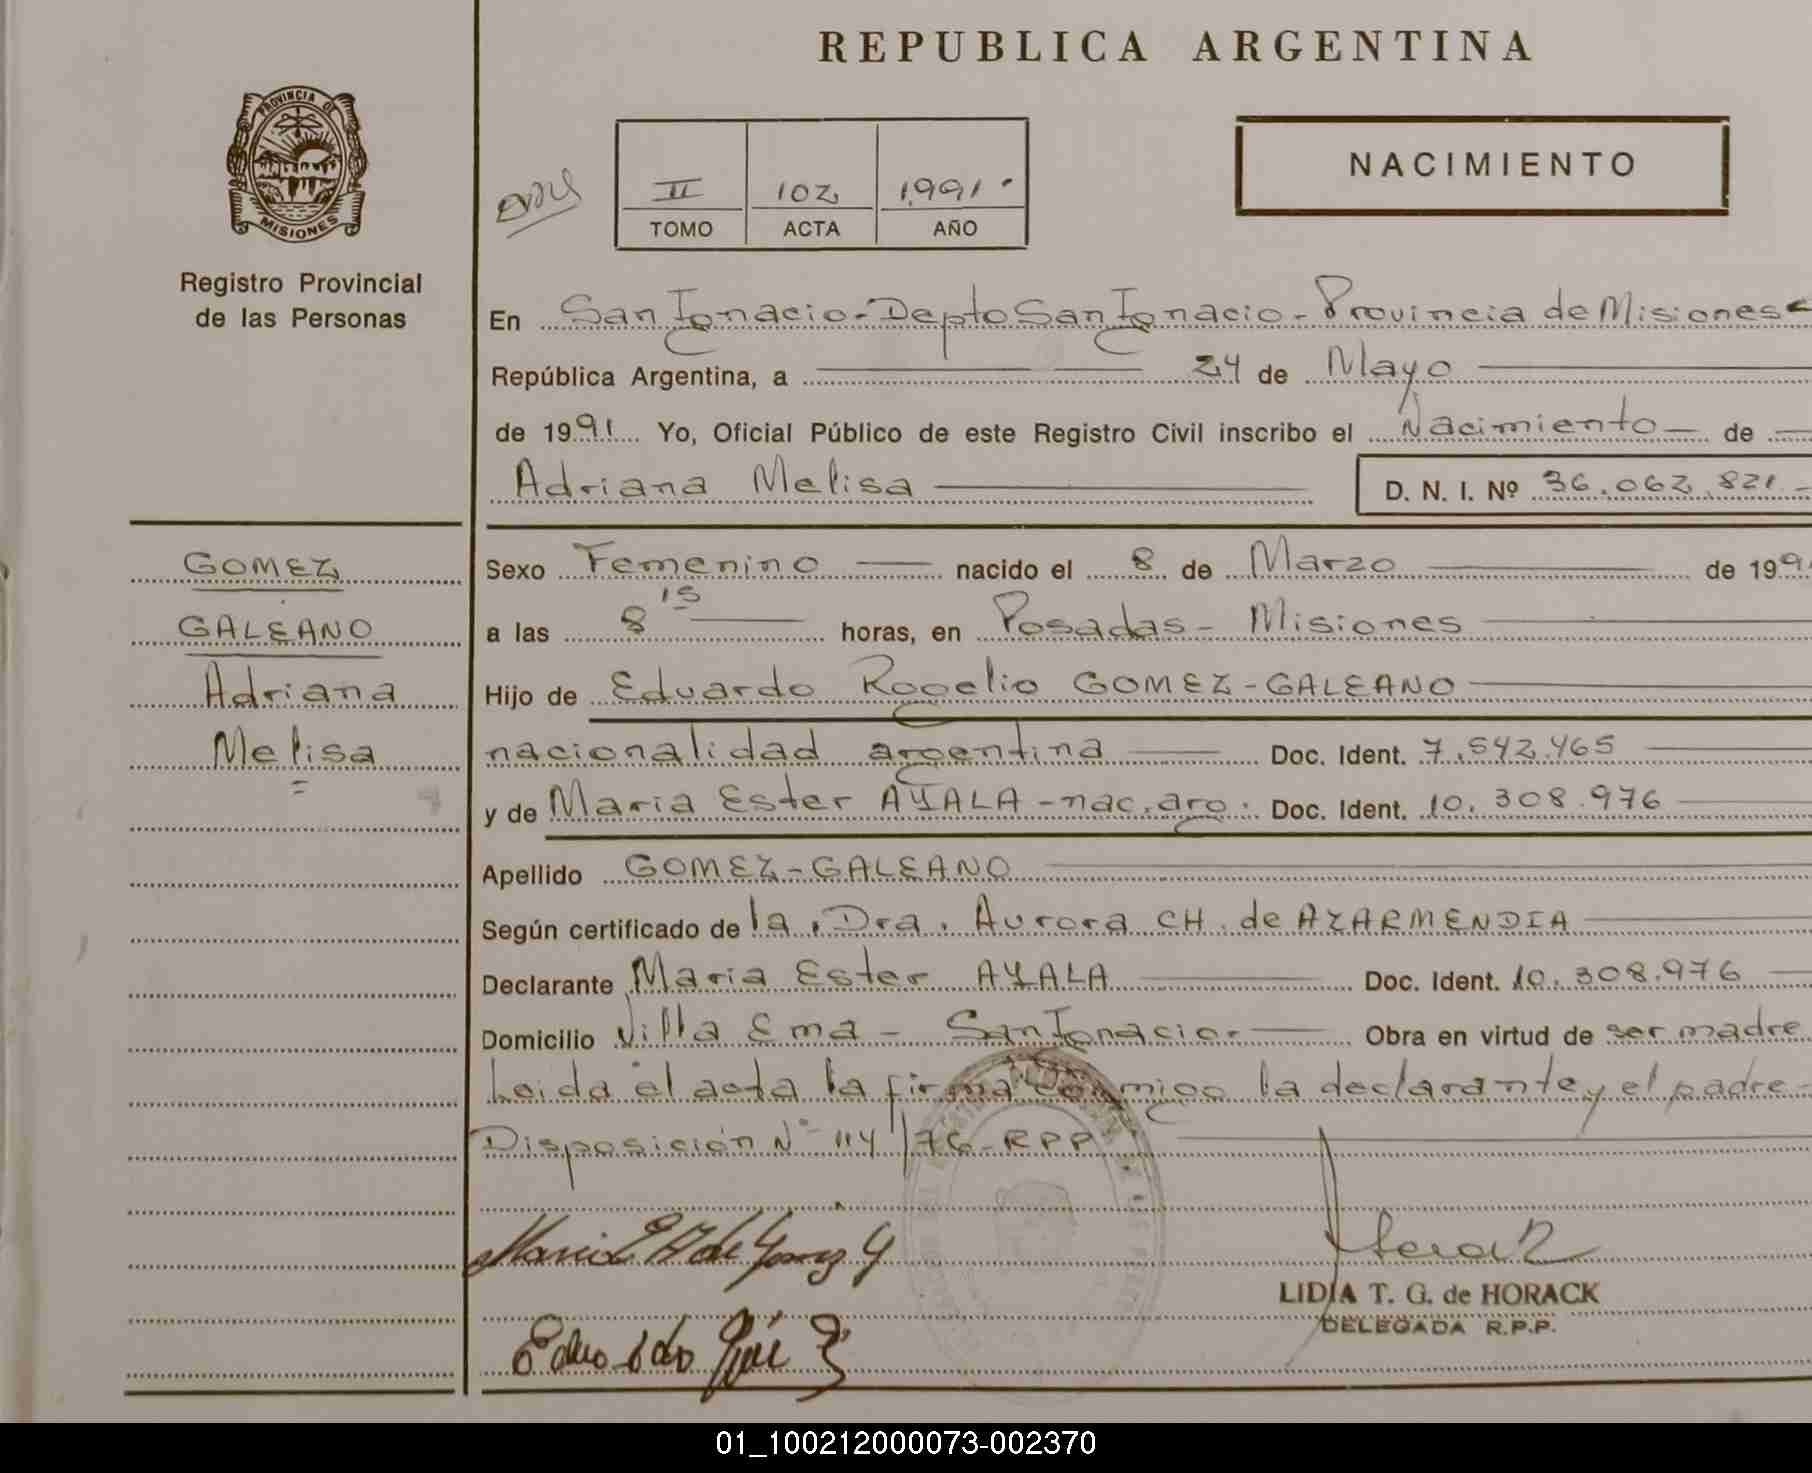 REPUBLICA ARGENTINA
PROVINCIA DE
MISIONES
Registro Provincial
de las Personas
II 102 1991
TOMO ACTA AÑO
NACIMIENTO
En San Ignacio - Depto San Ignacio - Provincia de Misiones
República Argentina, a 24 de Mayo
de 1991 Yo, Oficial Público de este Registro Civil inscribo el Nacimiento de
Adriana Melisa D. N. I. Nº 36.062.821
GOMEZ
GALEANO
Adriana
Melisa
Sexo Femenino nacido el 8 de Marzo de 199
a las 8 15 horas, en Posadas - Misiones
Hijo de Eduardo Rogelio GOMEZ-GALEANO
nacionalidad argentina Doc. Ident. 7.542.465
y de Maria Ester AYALA - nac. arg. Doc. Ident. 10.308.976
Apellido GOMEZ-GALEANO
Según certificado de la Dra. Aurora CH. de AZARMENDIA
Declarante Maria Ester AYALA Doc. Ident. 10.308.976
Domicilio Villa Ema - San Ignacio.- Obra en virtud de ser madre
Leida el acta la firma conmigo la declarante y el padre-
Disposición Nº 114/76-RPP
LIDIA T. G. de HORACK
DELEGADA R.P.P.
01_100212000073-002370